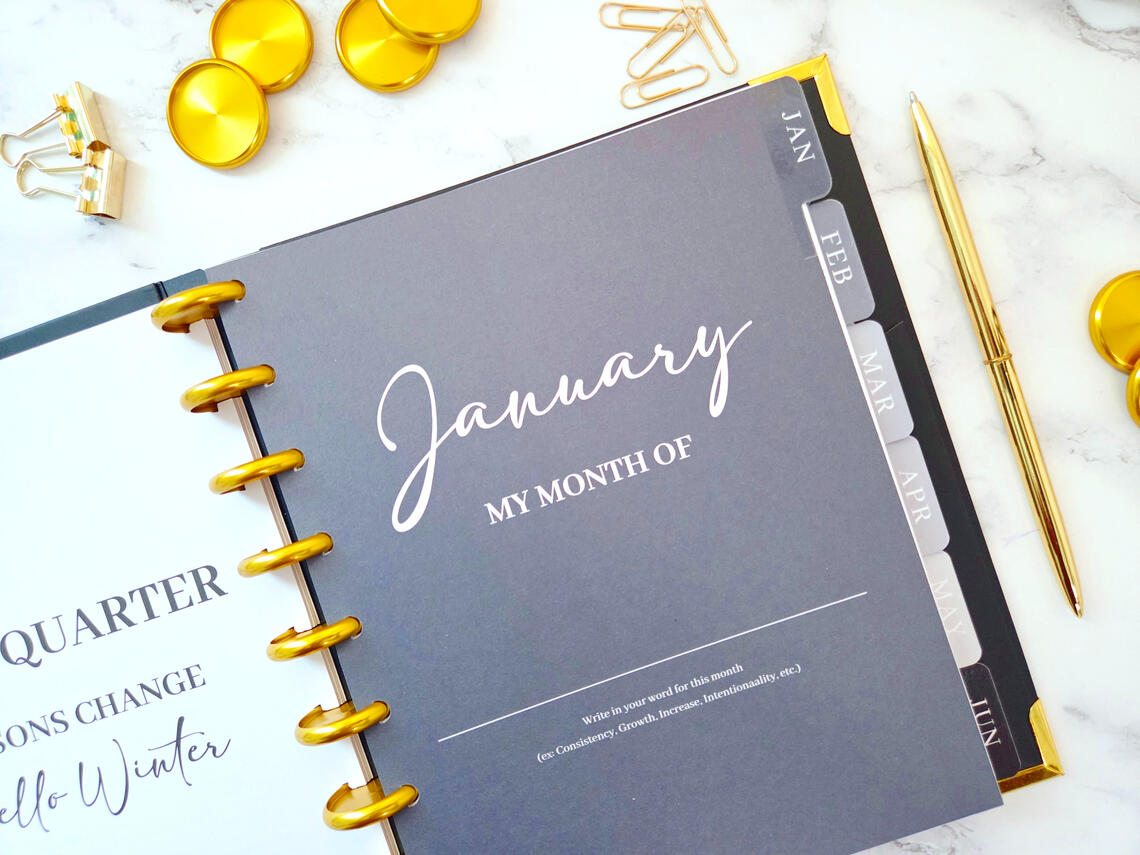 QUARTER
SONS CHANGE
ello Winter
January
MY MONTH OF
Write in your word for this month
(ex: Consistency, Growth, Increase, Intentionaality, etc.)
JAN
FEB
MAR
APR
MAY
JUN